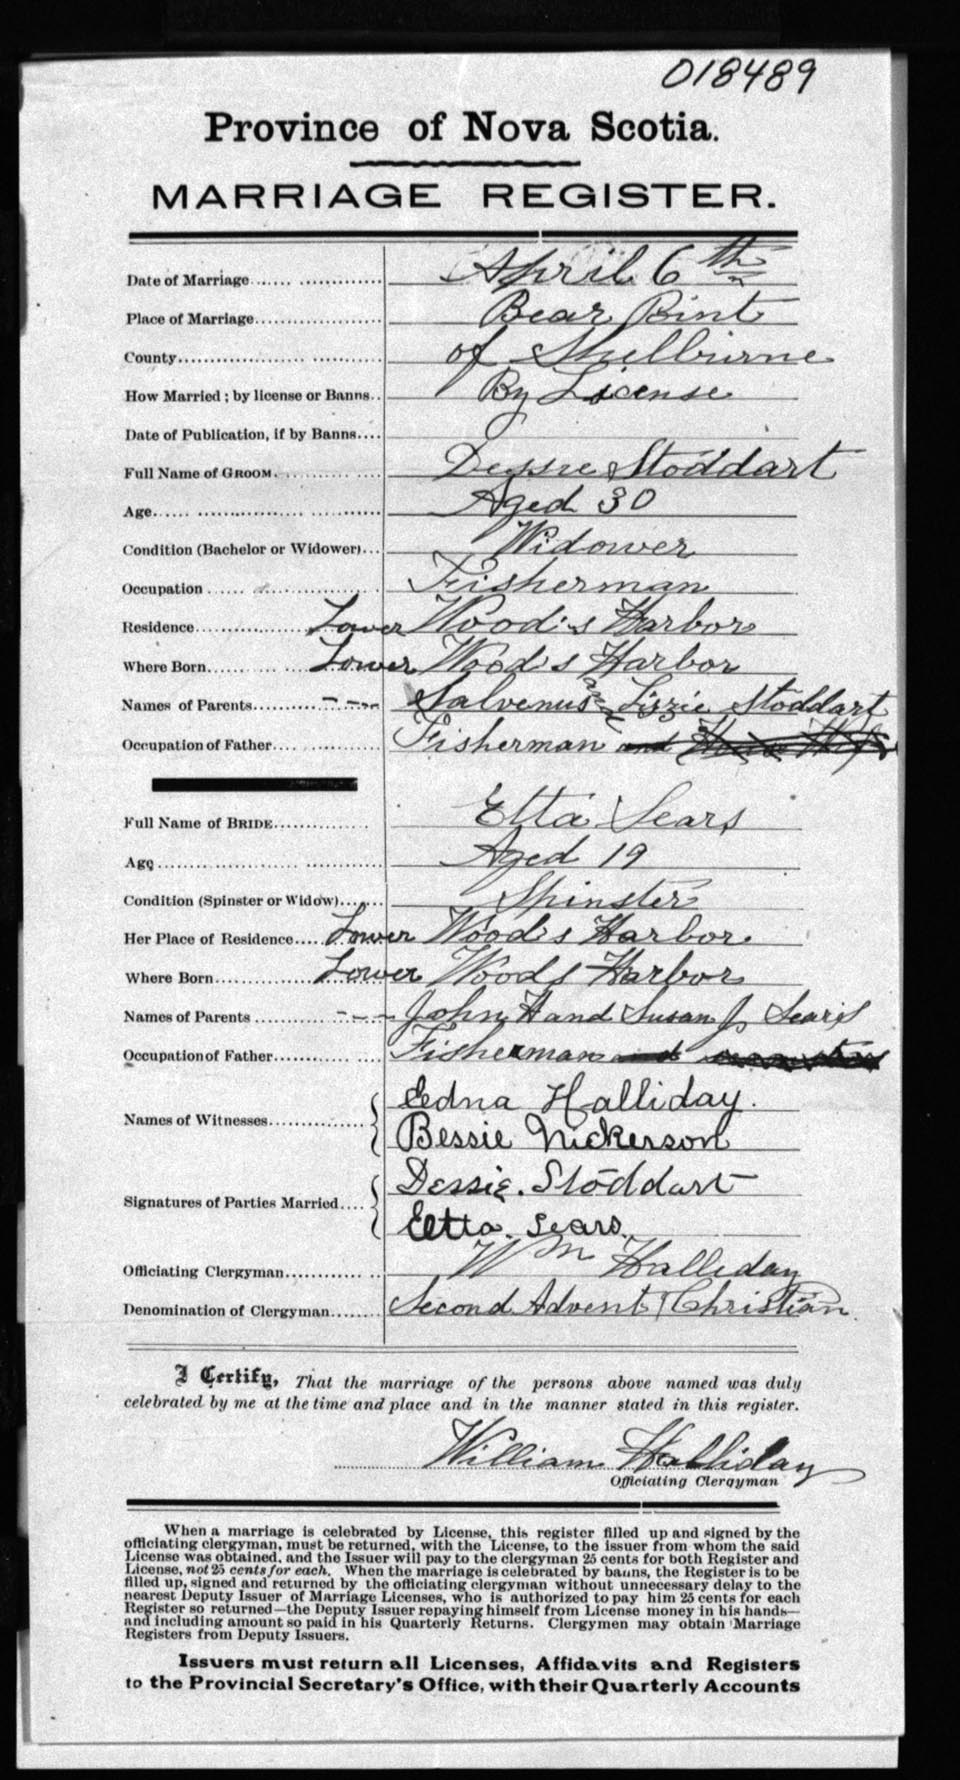 018489
Province of Nova Scotia.
MARRIAGE REGISTER.
Date of Marriage April 6th
Place of Marriage Bear Pint
County of Shelburne
How Married; by license or Banns By License
Date of Publication, if by Banns
Full Name of GROOM Dessie Stoddart
Age Aged 30
Condition (Bachelor or Widower) Widower
Occupation Fisherman
Residence Lower Wood's Harbor
Where Born Lower Wood's Harbor
Names of Parents Salvenus and Lizzie Stoddart
Occupation of Father Fisherman and House Wife
Full Name of BRIDE Etta Sears
Age Aged 19
Condition (Spinster or Widow) Spinster
Her Place of Residence Lower Wood's Harbor
Where Born Lower Woods Harbor
Names of Parents John H and Susan J Sears
Occupation of Father Fisherman and
Names of Witnesses Eedna Halliday.
Bessie Nickerson
Signatures of Parties Married Dessie. Stoddart
Eetta. Sears.
Officiating Clergyman Wm Halliday
Denomination of Clergyman Second Advent Christian
I Certify, That the marriage of the persons above named was duly
celebrated by me at the time and place and in the manner stated in this register.
William Halliday
Officiating Clergyman
When a marriage is celebrated by License, this register filled up and signed by the
officiating clergyman, must be returned, with the License, to the issuer from whom the said
License was obtained, and the Issuer will pay to the clergyman 25 cents for both Register and
License, not 25 cents for each. When the marriage is celebrated by banns, the Register is to be
filled up, signed and returned by the officiating clergyman without unnecessary delay to the
nearest Deputy Issuer of Marriage Licenses, who is authorized to pay him 25 cents for each
Register so returned—the Deputy Issuer repaying himself from License money in his hands—
and including amount so paid in his Quarterly Returns. Clergymen may obtain Marriage
Registers from Deputy Issuers.
Issuers must return all Licenses, Affidavits and Registers
to the Provincial Secretary's Office, with their Quarterly Accounts